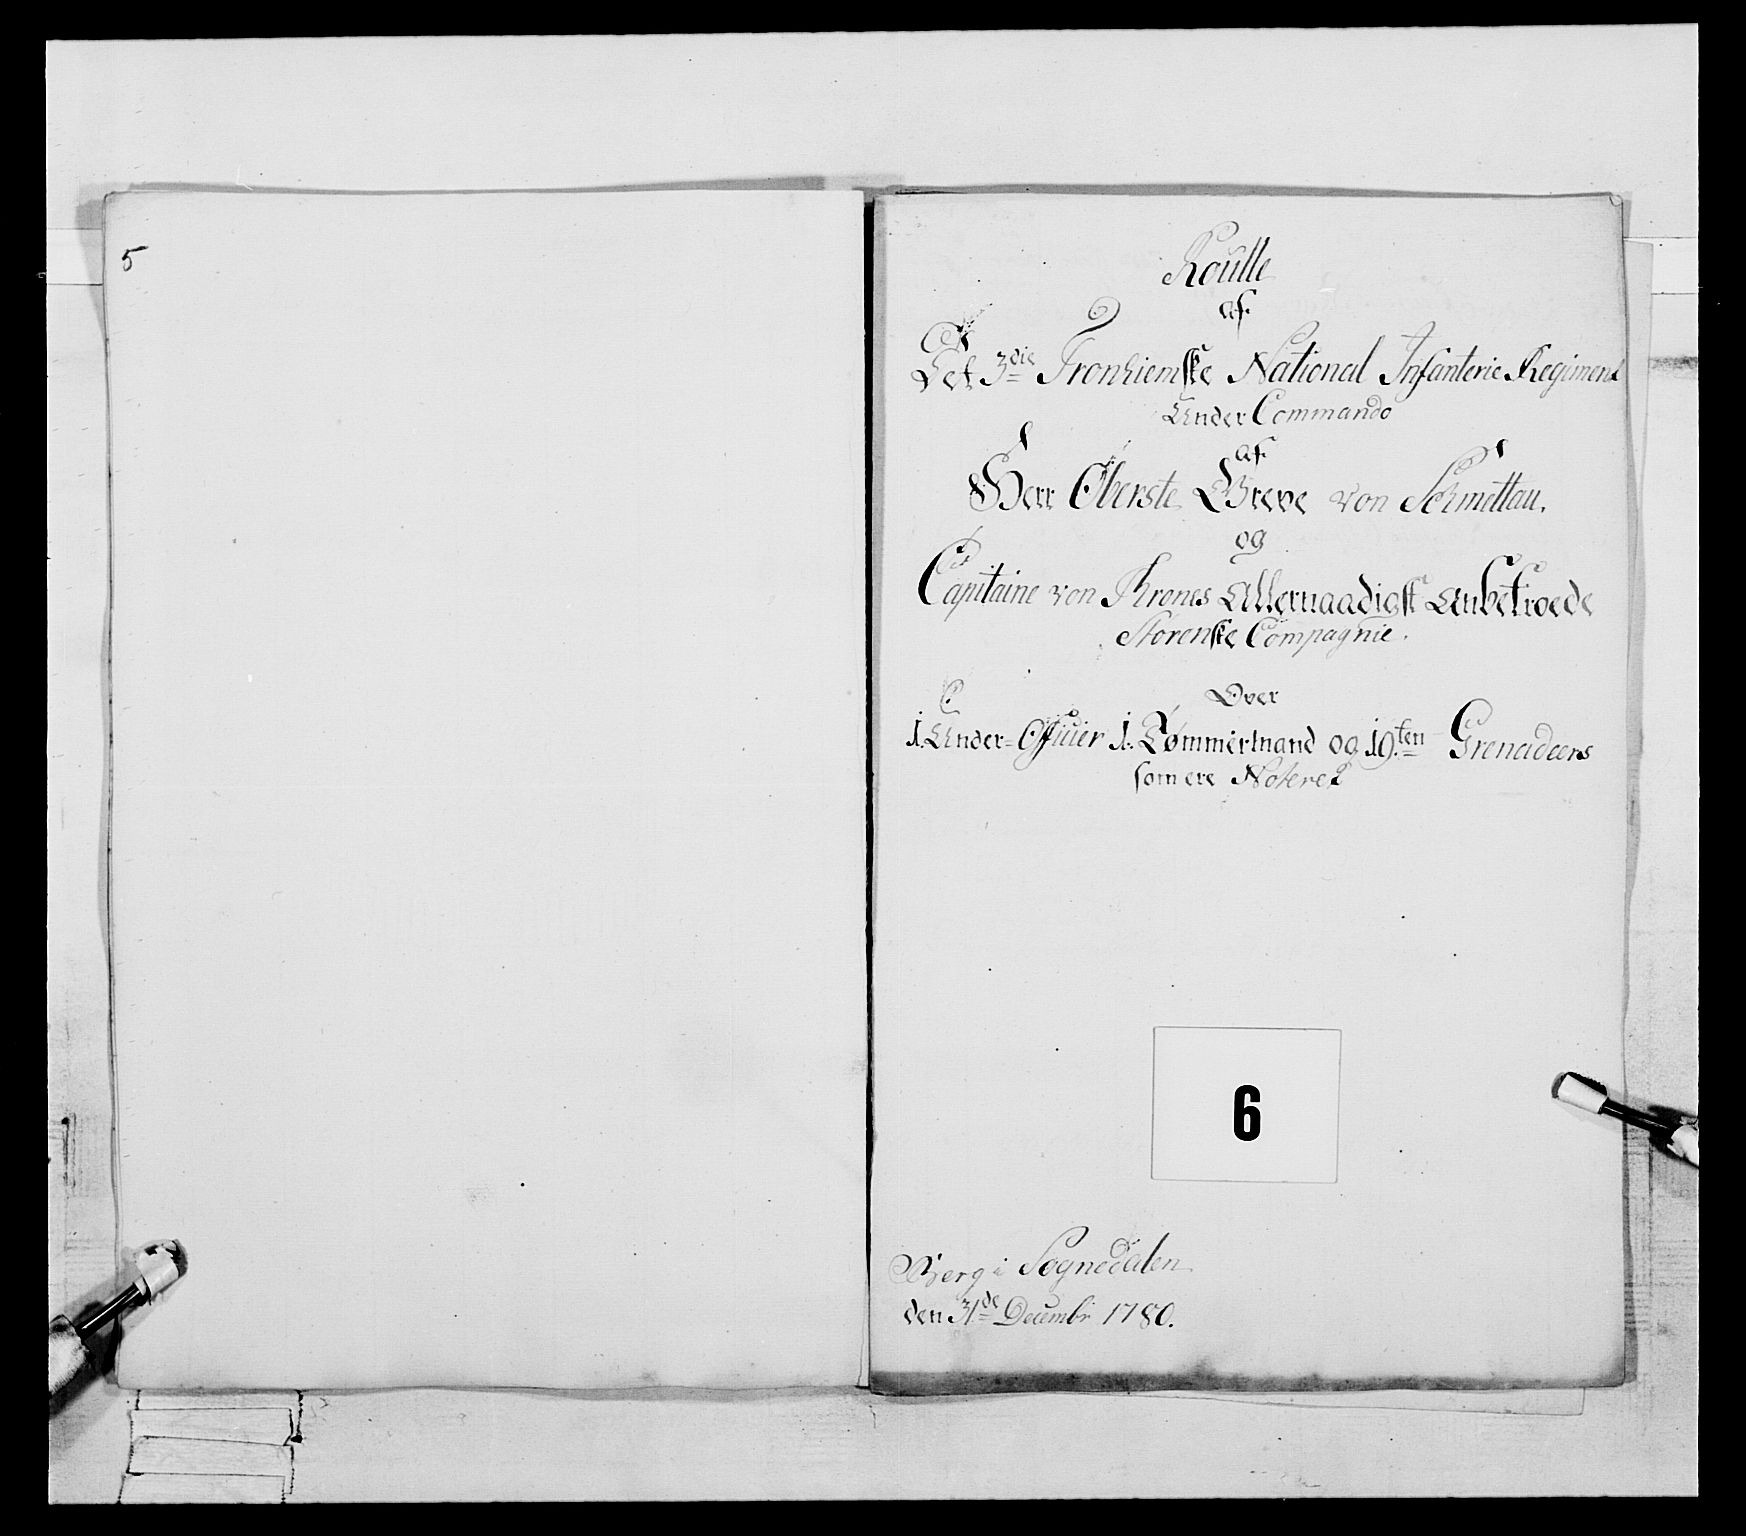 5
Roulle
af
Det 3die Tronhiemske National Infanterie Regiment
Under Commando
af
Herr Oberste Greve von Schmettau.
og
Capitaine von Krones Allernaadigst Anbetroede
Storenske Compagnie.
Over
1. Under=Officier 1. Tømmermand og 19.ten Grenadeers
som ere Noteret
6
Berg i Sognedalen
den 31de Decembr 1780.